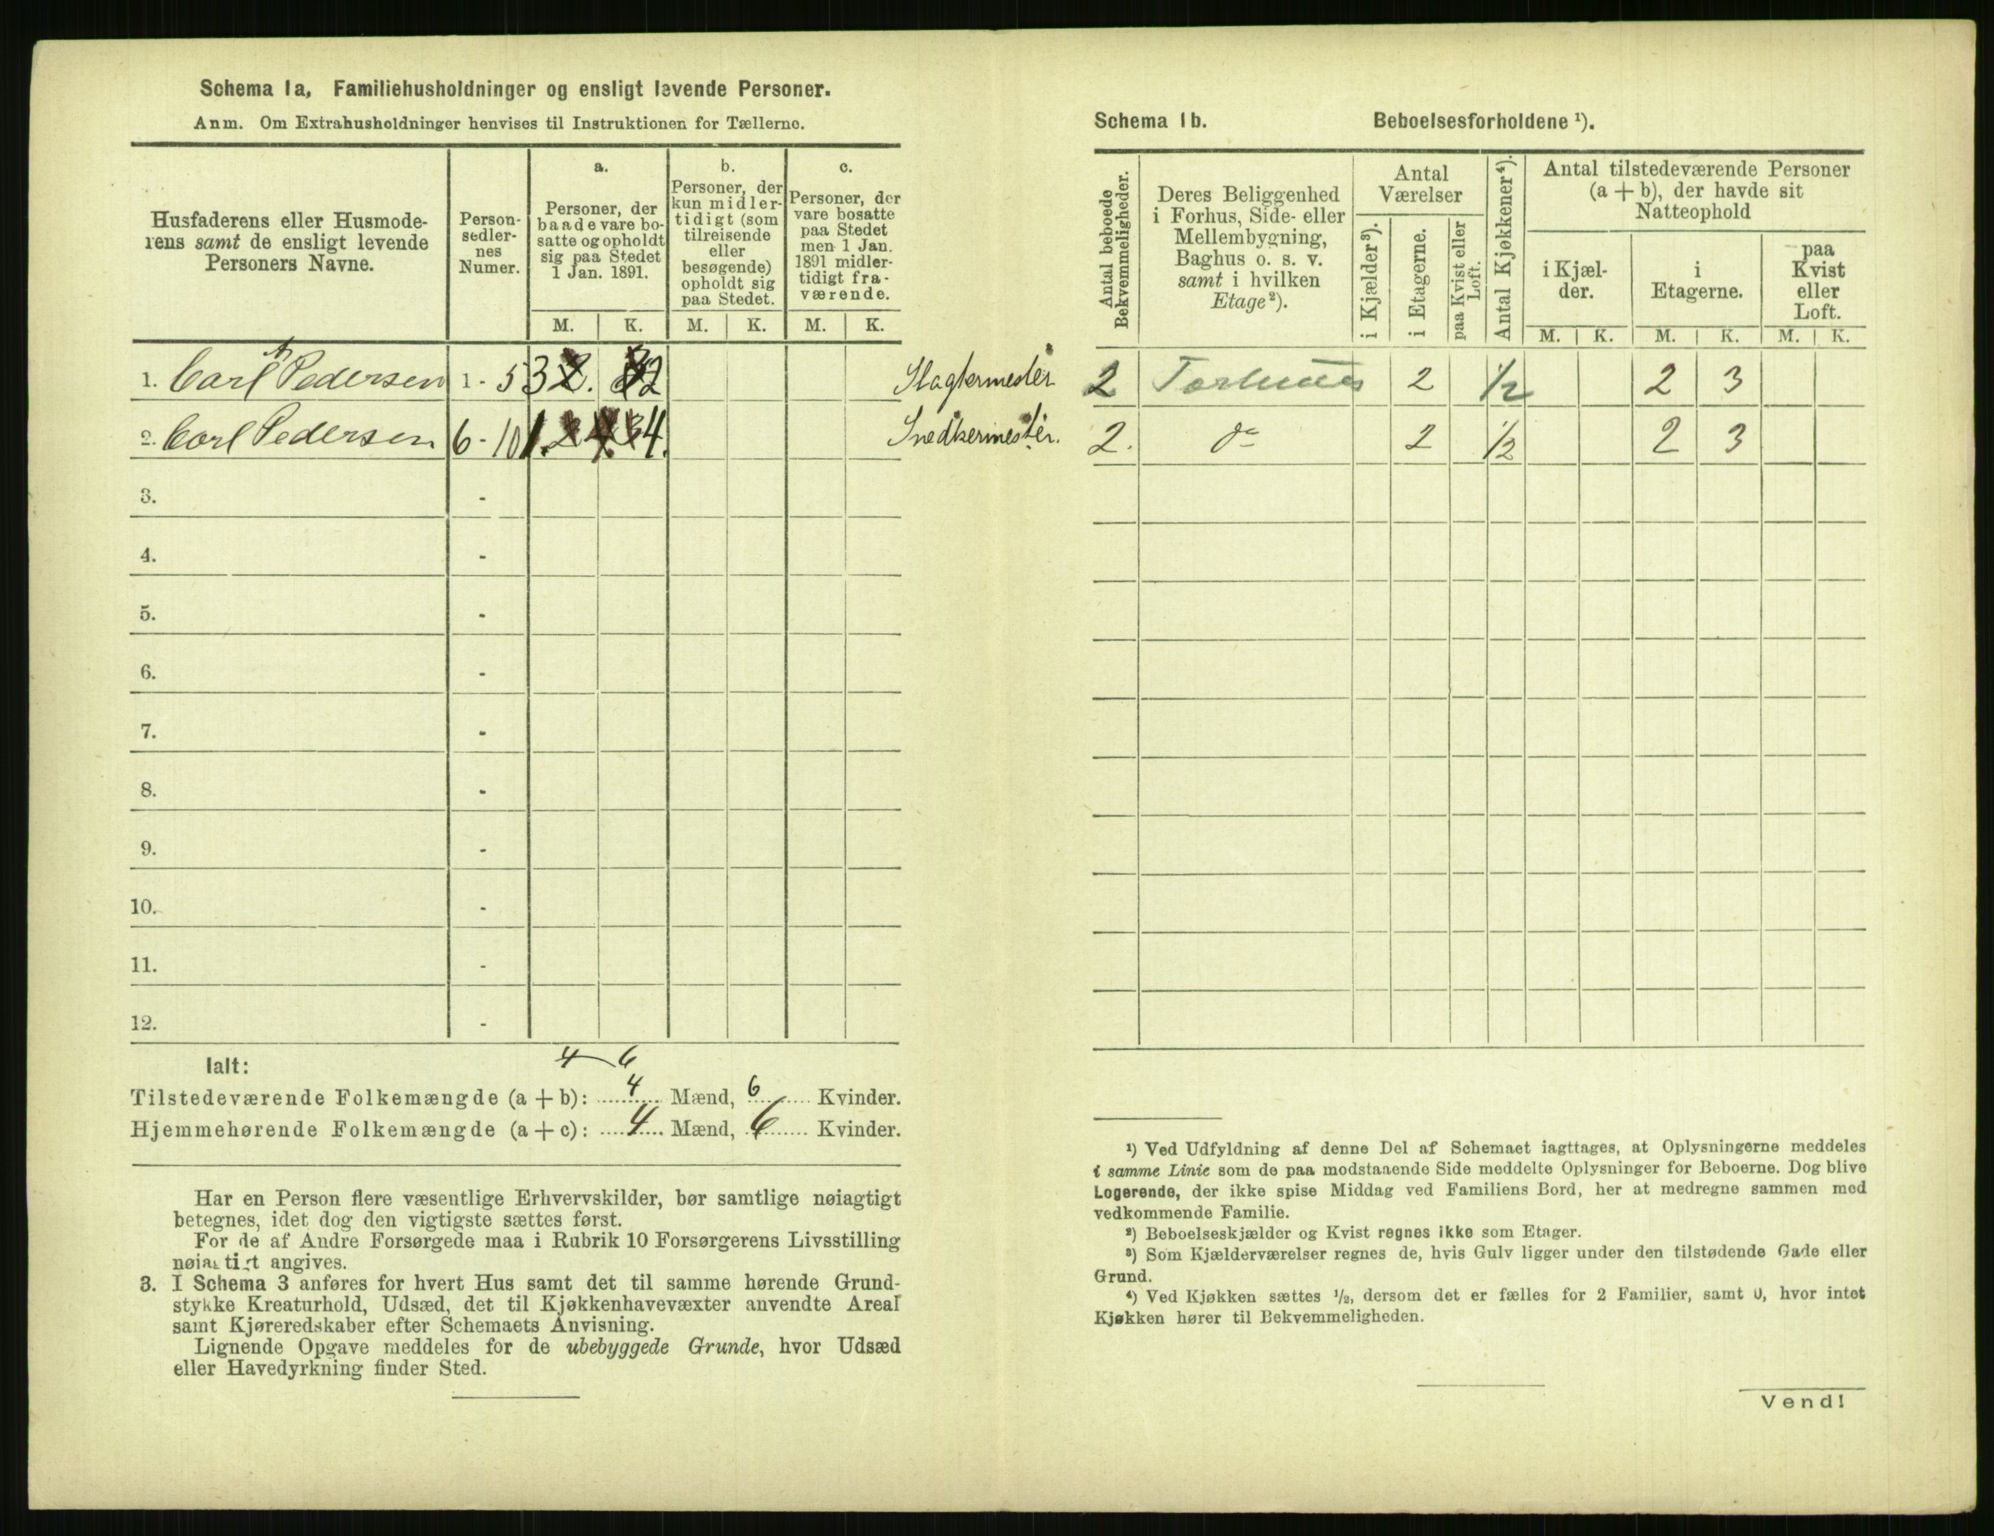 Schema 1a. Familiehusholdninger og ensligt levende Personer.
Anm. Om Extrahusholdninger henvises til Instruktionen for Tællerne.
Husfaderens eller Husmode-
rens samt de ensligt levende
Personers Navne.
Person-
sedler-
nes
Numer.
a.
Personer, der
baade vare bo-
satte og opholdt
sig paa Stedet
1 Jan. 1891.
b.
Personer, der
kun midler-
tidigt (som
tilreisende
eller
besøgende)
opholdt sig
paa Stedet.
c.
Personer, der
vare bosatte
paa Stedet
men 1 Jan.
1891 midler-
tidigt fra-
værende.
M. K. M. K. M. K.
1. Carl Pedersen 1 - 5 3 2 Slagtermester
2. Carl Pedersen 6 - 10 1. 4. Snedkermester.
3. -
4. -
5. -
6. -
7. -
8. -
9. -
10. -
11. -
12. -
Ialt:
4 6
Tilstedeværende Folkemængde (a + b): 4 Mænd, 6 Kvinder.
Hjemmehørende Folkemængde (a + c): 4 Mænd, 6 Kvinder.
Har en Person flere væsentlige Erhvervskilder, bør samtlige nøiagtigt
betegnes, idet dog den vigtigste sættes først.
For de af Andre Forsørgede maa i Rubrik 10 Forsørgerens Livsstilling
nøiagtigt angives.
3. I Schema 3 anføres for hvert Hus samt det til samme hørende Grund-
stykke Kreaturhold, Udsæd, det til Kjøkkenhavevæxter anvendte Areal
samt Kjøreredskaber efter Schemaets Anvisning.
Lignende Opgave meddeles for de ubebyggede Grunde, hvor Udsæd
eller Havedyrkning finder Sted.
Schema 1b. Beboelsesforholdene ¹).
Antal beboede
Bekvemmeligheder.
Deres Beliggenhed
i Forhus, Side- eller
Mellembygning,
Baghus o. s. v.
samt i hvilken
Etage ²).
Antal
Værelser
i Kjælder ³).
i Etagerne.
paa Kvist eller
Loft.
Antal Kjøkkener ⁴).
Antal tilstedeværende Personer
(a + b), der havde sit
Natteophold
i Kjæl-
der.
i
Etagerne.
paa
Kvist
eller
Loft.
M. K. M. K. M. K.
2 Forhuus 2 1/2 2 3
2. do 2 1/2 2 3
¹) Ved Udfyldning af denne Del af Schemaet iagttages, at Oplysningerne meddeles
i samme Linie som de paa modstaaende Side meddelte Oplysninger for Beboerne. Dog blive
Logerende, der ikke spise Middag ved Familiens Bord, her at medregne sammen med
vedkommende Familie.
²) Beboelseskjælder og Kvist regnes ikke som Etager.
³) Som Kjælderværelser regnes de, hvis Gulv ligger under den tilstødende Gade eller
Grund.
⁴) Ved Kjøkken sættes ¹/₂, dersom det er fælles for 2 Familier, samt 0, hvor intet
Kjøkken hører til Bekvemmeligheden.
Vend!